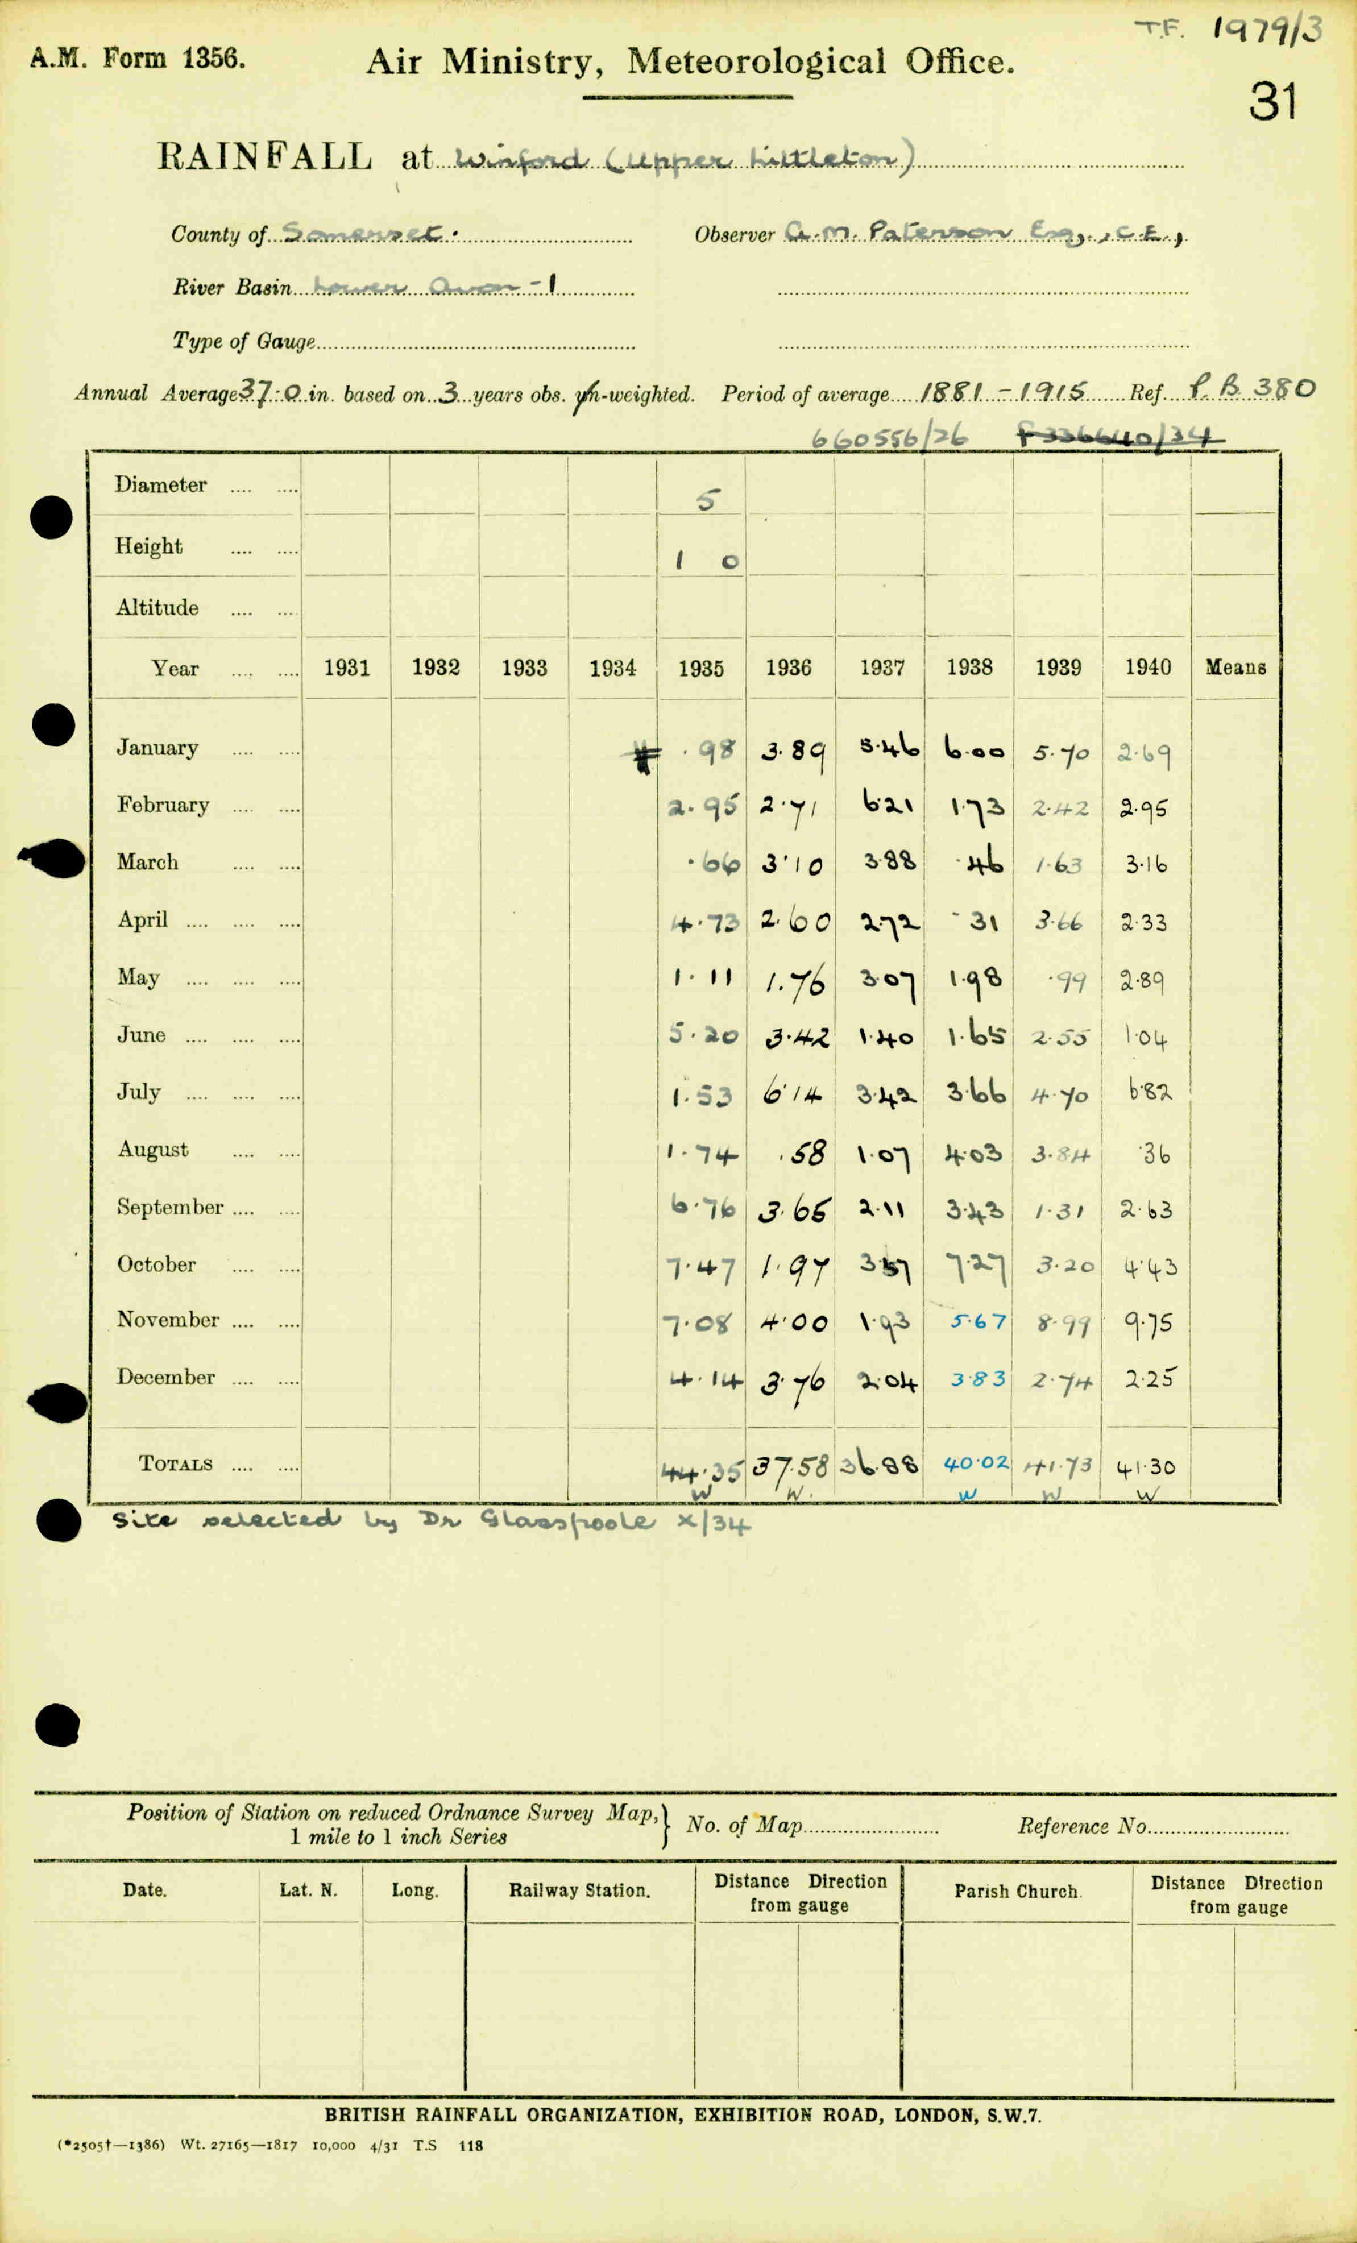 T.F. 1979/3
A.M. Form 1356. Air Ministry, Meteorological Office.
31
RAINFALL at Winford (Upper Littleton)
County of Somerset. Observer A.M. Paterson Esq., C.E.,
River Basin Lower Avon - 1
Type of Gauge
Annual Average 37.0 in. based on 3 years obs. -weighted. Period of average 1881 - 1915 Ref. P.B. 380
660556/26 P336640/34
Diameter .... .... 5
Height .... .... 1 0
Altitude .... ....
Year .... .... 1931 1932 1933 1934 1935 1936 1937 1938 1939 1940 Means
January .... .... .98 3.89 5.46 6.00 5.70 2.69
February .... .... 2.95 2.71 6.21 1.73 2.42 2.95
March .... .... .66 3.10 3.88 .46 1.63 3.16
April .... .... .... 4.73 2.60 2.72 .31 3.66 2.33
May .... .... .... 1.11 1.76 3.07 1.98 .99 2.89
June .... .... .... 5.20 3.42 1.40 1.65 2.55 1.04
July .... .... .... 1.53 6.14 3.42 3.66 4.70 6.82
August .... .... 1.74 .58 1.07 4.03 3.84 .36
September .... .... 6.76 3.65 2.11 3.43 1.31 2.63
October .... .... 7.47 1.97 3.57 7.27 3.20 4.43
November .... .... 7.08 4.00 1.93 5.67 8.99 9.75
December .... .... 4.14 3.76 2.04 3.83 2.74 2.25
TOTALS .... .... 44.35 37.58 36.88 40.02 41.73 41.30
W W. W W W
Site selected by Dr Glasspoole X/34
Position of Station on reduced Ordnance Survey Map,} No. of Map Reference No.
1 mile to 1 inch Series
Date. Lat. N. Long. Railway Station. Distance Direction from gauge Parish Church. Distance Direction from gauge
BRITISH RAINFALL ORGANIZATION, EXHIBITION ROAD, LONDON, S.W.7.
(*2505†—1386) Wt. 27165—1817 10,000 4/31 T.S 118